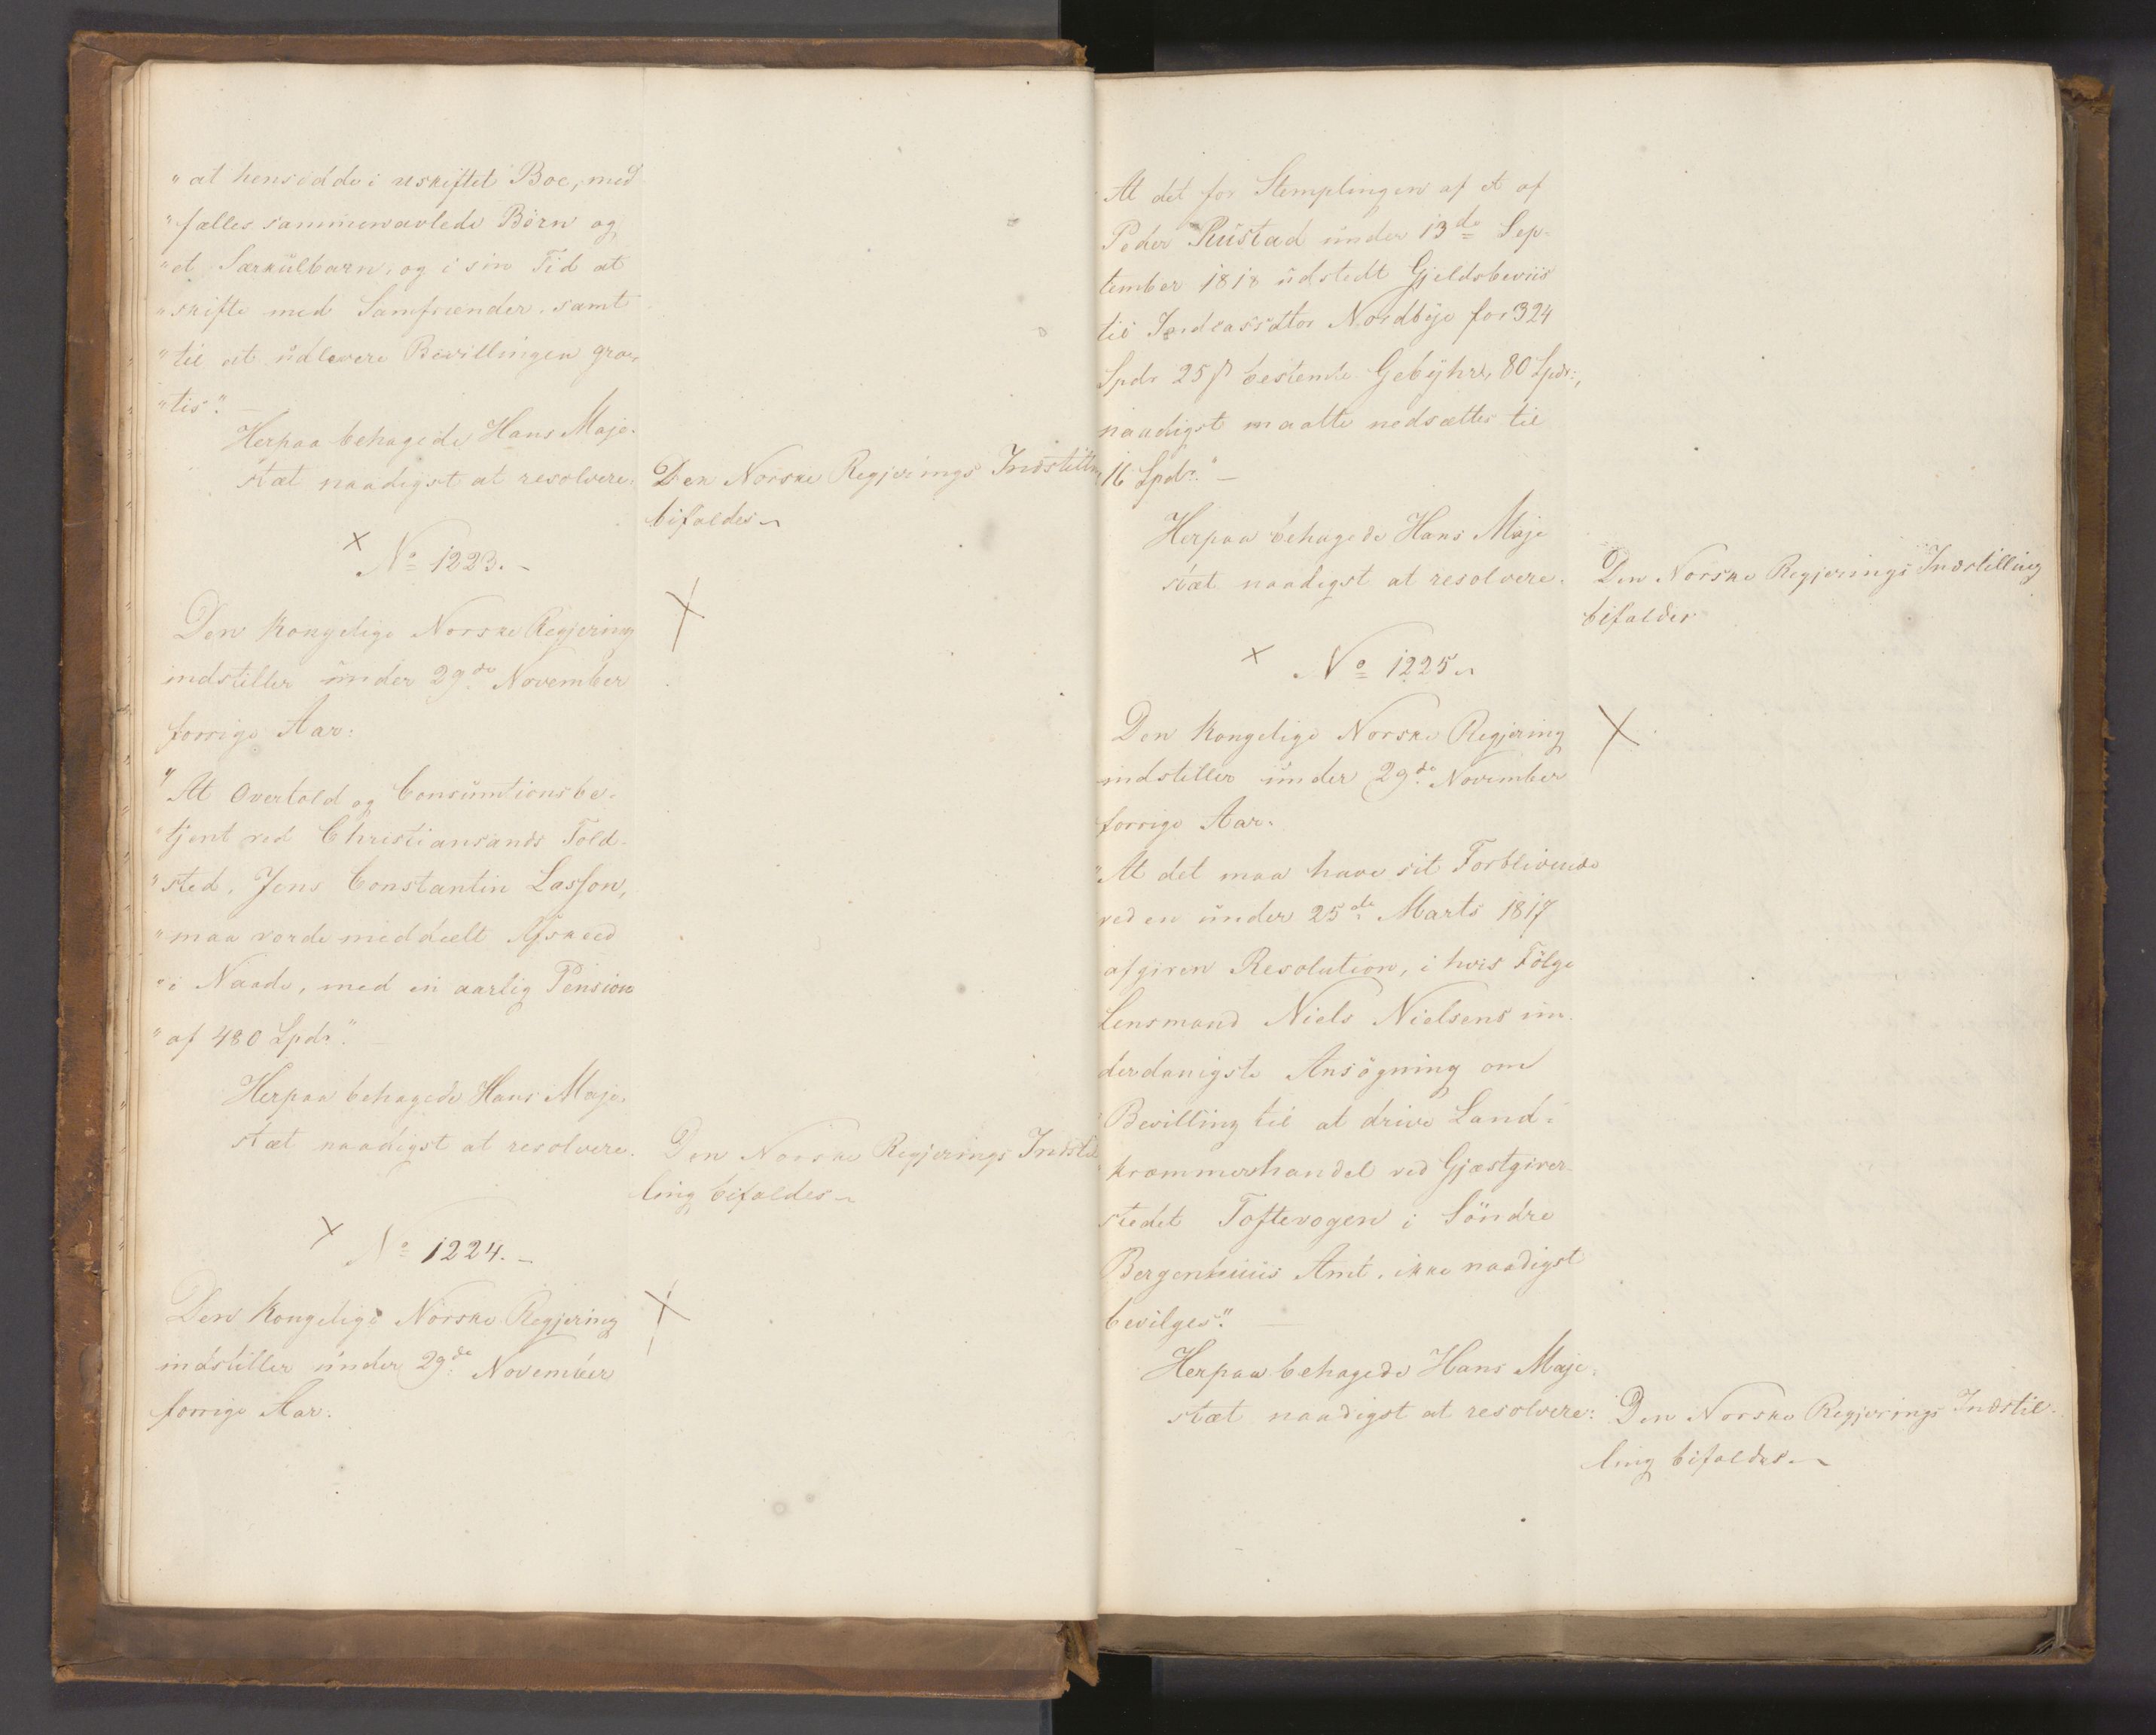 "at hensidde i uskiftet Boe, med
"fælles sammenavlede Børn og
"et Særkulbarn, og i sin Tid at
"skifte med Samfrænder, samt
"til at udlevere Bevillingen gra-
"tis". —
Herpaa behagede Hans Maje-
stæt naadigst at resolvere:
Den Norske Regjerings Indstilln
bifaldes
× No 1223. –
Den Kongelige Norske Regjering
indstiller under 29de November
forrige Aar:
"At Overtold og Consumtionsbe-
"tjent ved Christiansands Told-
"sted, Jens Constantin Lasson,
"maa vorde meddeelt Afskeed
"i Naade, med en aarlig Pension
"af 480 Spdr". —
Herpaa behagede Hans Maje-
stæt naadigst at resolvere.
Den Norske Regjerings Indstil
ling bifaldes
× No 1224. –
Den Kongelige Norske Regjering
indstiller under 29de November
forrige Aar:
At det for Stemplingen af et af
Peder Rustad under 13de Sep-
tember 1818 udstedt Gjeldsbeviis
til Nordbye for 324
Spdr 25 ß bestemte Gebyhr, 80 Spdr:,
naadigst maatte nedsættes til
16 Spdr." —
Herpaa behagede Hans Maje
stæt naadigst at resolvere.
Den Norske Regjerings Indstilling
bifaldes
× No 1225
Den Kongelige Norske Regjering
indstiller under 29de November
forrige Aar.
"At det maa have sit Forblivende
ved en under 25de Marts 1817
afgiven Resolution, i hvis Følge
Lensmand Niels Nielsens un-
derdanigste Ansøgning om
Bevilling til at drive Land-
kræmmerhandel ved Gjæstgiver-
stedet Toftevogen i Söndre
Bergenhuus Amt, ikke naadigst
bevilges". —
Herpaa behagede Hans Maje-
stæt naadigst at resolvere:
Den Norske Regjerings Indstil-
ling bifaldes.